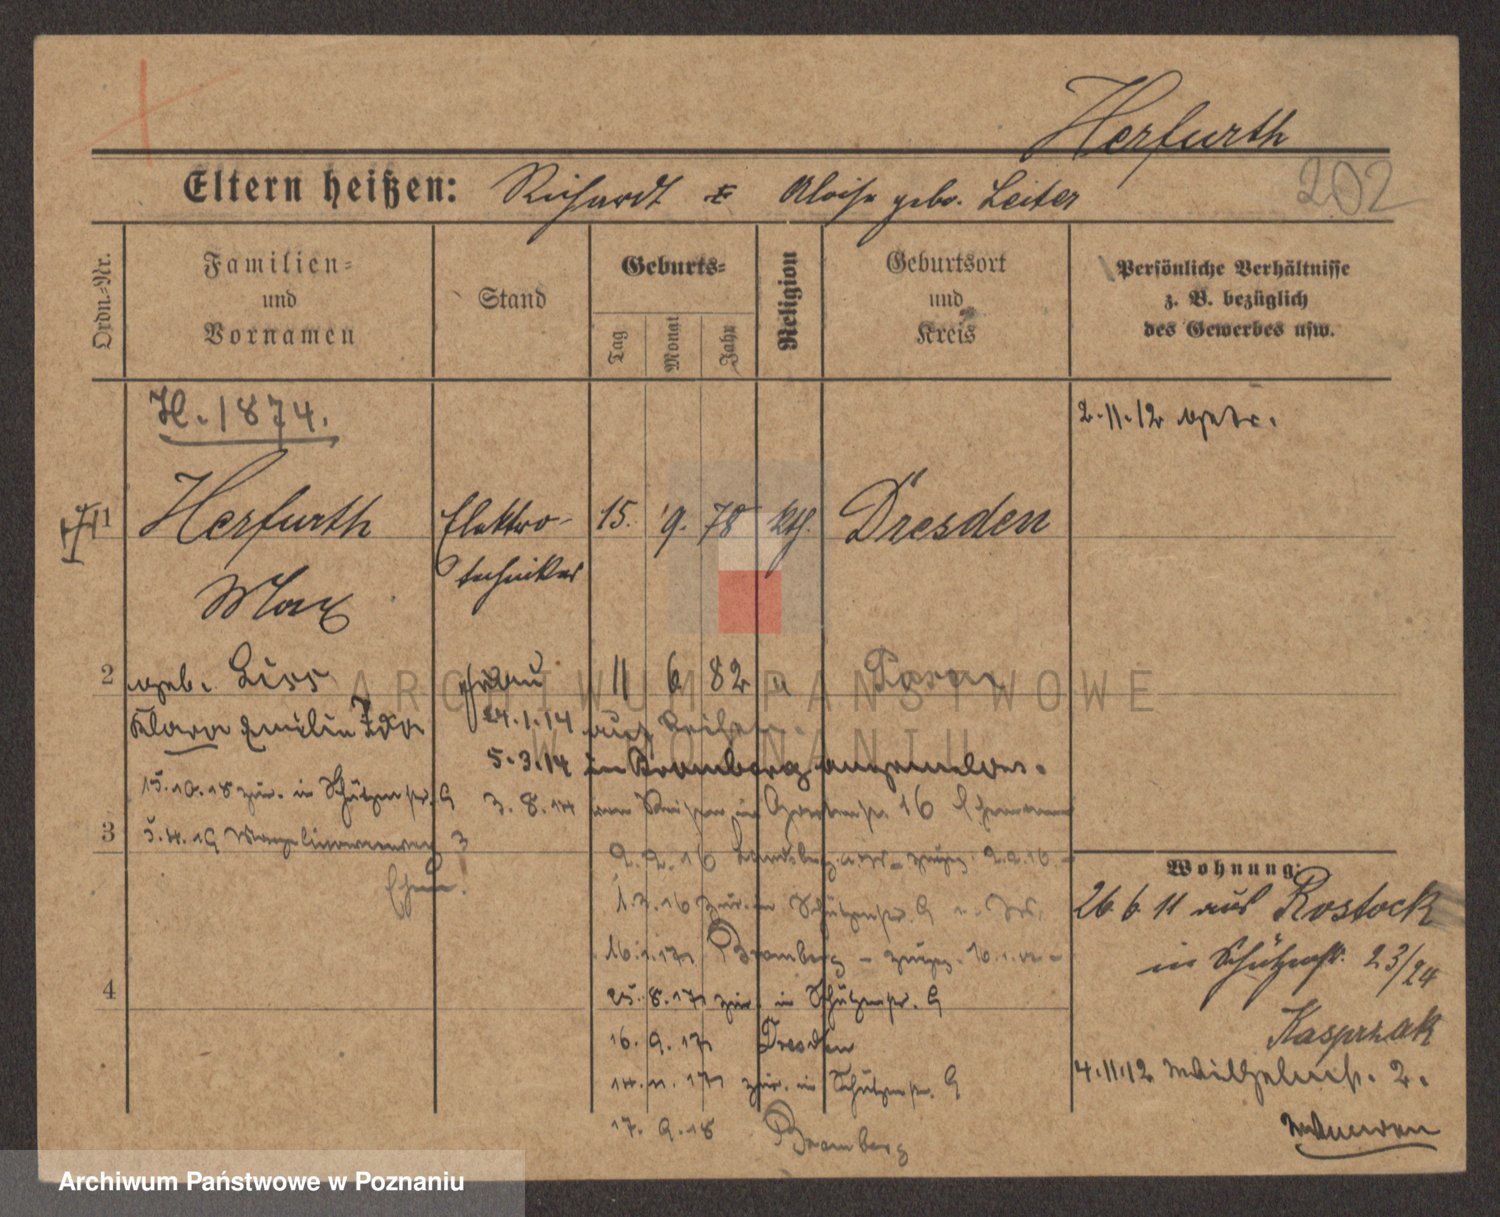 Herfurth
202
Eltern heißen: Richardt & Aloise geb. Leiter
Ordn.-Nr.
Familien-
und
Vornamen
Stand
Geburts-
Tag
Monat
Jahr
Religion
Geburtsort
und
Kreis
Persönliche Verhältnisse
z. B. bezüglich
des Gewerbes usw.
H. 1874.
2.11.12
1 Herfurth Elektro- 15. 9. 78 kth. Dresden
techniker
Max
2 geb. Liss Frau 11 6 82 Posen
Klara Emilie Ida 24.1.14
5.3.14 in Bromberg
15.10.18 zur. in Schützenstr. 9
3.8.14 16
3
5.4.19
2.2.16 2.2.16
1.3.16 zur. in Schützenstr. 9
Wohnung:
26 6 11 aus Rostock
in Schützenstr. 23/24
Kasprzak
4.11.12 Wilhelmstr. 2.
16.1.17 Bromberg
4
25.8.17 zur. in Schützenstr. 9
16.9.17 Dresden
14.11.17 zur. in Schützenstr. 9
17.9.18 Bromberg
ARCHIWUM PAŃSTWOWE
W POZNANIU
Archiwum Państwowe w Poznaniu